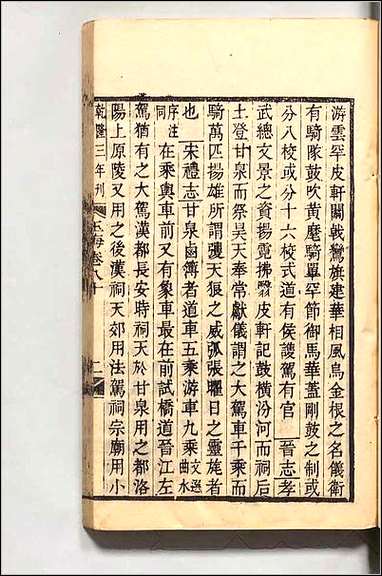 游雲罕皮軒闟戟鸞旗建華相風烏金根之名儀衛
有騎隊鼓吹黄麾騎單罕節御馬華蓋剛鼓之制或
分八校或分十六校式道有侯護駕有官 晉志孝
武總文景之資揚霓拂翳皮軒記鼓横汾河而祠后
土登甘泉而祭昊天奉常獻儀謂之大駕車千乘而
騎萬匹揚雄所謂彏天狼之威弧張曜日之靈旄者
也 宋禮志甘泉鹵簿者道車五乘游車九乘文選曲水
序注同 在乘輿車前又有象車最在前試橋道晉江左
駕猶有之大駕漢都長安時祠天於甘泉用之都洛
陽上原陵又用之後漢祠天郊用法駕祠宗廟用小
乾隆三年刊 玉海卷八十 二